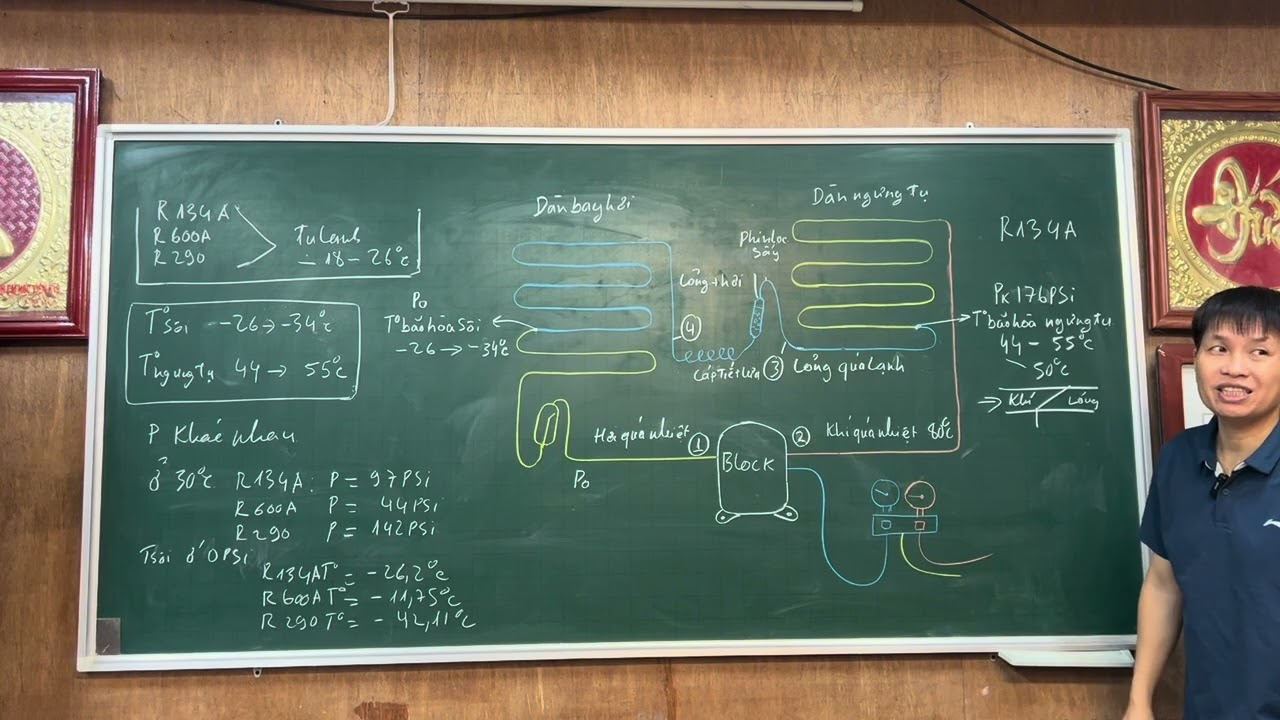 R134A
R600A
R290
Tủ lạnh
-18 - 26°c
T° sôi -26 → -34°c
T° ngưng tụ 44 → 55°c
P Khác nhau
ở 30°c R134A: P = 97PSi
R600A P = 44PSi
R290 P = 142PSi
Tsôi ở OPSi
R134A T° = -26,2°c
R600A T° = -11,75°c
R290 T° = -42,11°c
Dàn bay hơi
Po
T° bão hòa sôi
-26 → -34°c
Dàn ngưng tụ
Phin lọc
Sấy
Lỏng + hơi
4
Cáp Tiết Lưu
3
Lỏng quá lạnh
Hơi quá nhiệt
1
Po
Block
2
Khí quá nhiệt 80°c
R134A
PK 176PSi
T° bão hòa ngưng tụ
44 - 55°c
50°c
Khí / Lỏng